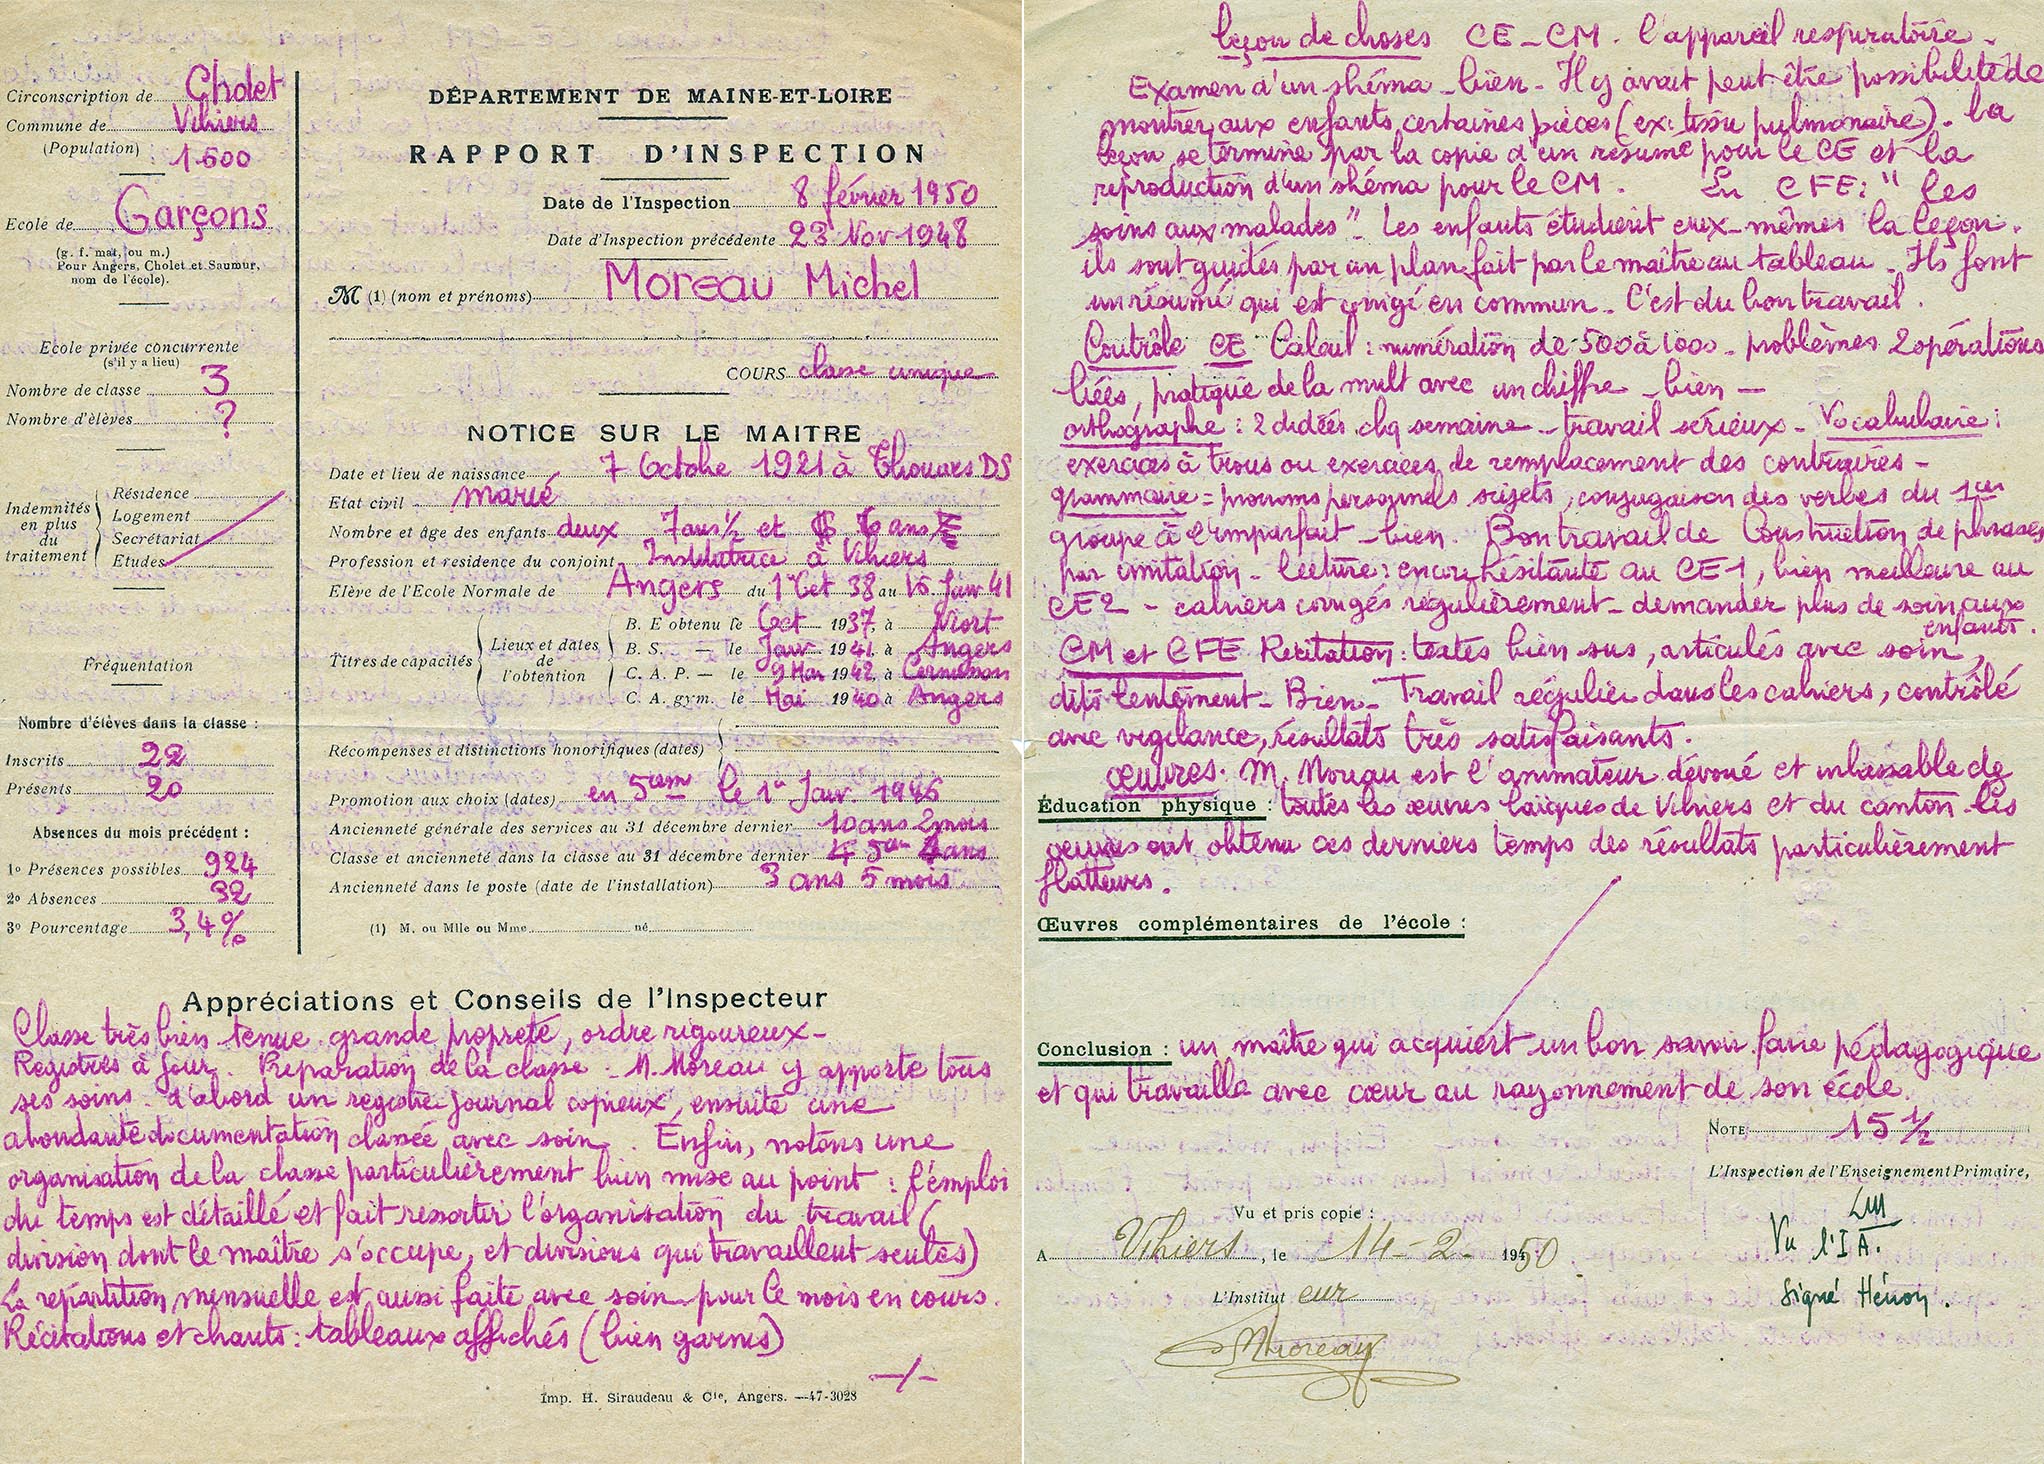 Circonscription de Cholet
Commune de Vihiers
(Population) 1600
Ecole de Garçons
(g. f. mat. ou m.)
Pour Angers, Cholet et Saumur,
nom de l'école).
Ecole privée concurrente
(s'il y a lieu)
Nombre de classe 3
Nombre d'élèves ?
Indemnités en plus du traitement
Résidence
Logement
Secrétariat
Etudes
Fréquentation
Nombre d'élèves dans la classe :
Inscrits 22
Présents 20
Absences du mois précédent :
1º Présences possibles 924
2º Absences 32
3º Pourcentage 3,4%
DÉPARTEMENT DE MAINE-ET-LOIRE
RAPPORT D'INSPECTION
Date de l'Inspection 8 février 1950
Date d'Inspection précédente 23 Nov 1948
M (1) (nom et prénoms) Moreau Michel
COURS classe unique
NOTICE SUR LE MAITRE
Date et lieu de naissance 7 Octobre 1921 à Thouars DS
Etat civil marié
Nombre et âge des enfants deux 7 ans ½ et 6 ans
Profession et residence du conjoint Institutrice à Vihiers
Elève de l'Ecole Normale de Angers du 1 Oct 38 au 15 Janv 41
Titres de capacités
Lieux et dates de l'obtention
B. E obtenu le Oct 1937, à Niort
B. S. — le Janv 1941. à Angers
C. A. P. — le 9 Mar 1942, à
C. A. gym. le Mai 1940 à Angers
Récompenses et distinctions honorifiques (dates)
Promotion aux choix (dates) en 5ème le 1er Janv. 1946
Ancienneté générale des services au 31 décembre dernier 10 ans 2 mois
Classe et ancienneté dans la classe au 31 décembre dernier 4 ans
Ancienneté dans le poste (date de l'installation) 3 ans 5 mois
(1) M. ou Mlle ou Mme né
Appréciations et Conseils de l'Inspecteur
Classe très bien tenue grande propreté, ordre rigoureux -
Registres à jour. Préparation de la classe : M. Moreau y apporte tous
ses soins. d'abord un registre journal copieux, ensuite une
abondante documentation classée avec soin. Enfin, notons une
organisation de la classe particulièrement bien mise au point : l'emploi
du temps est détaillé et fait ressortir l'organisation du travail (
division dont le maître s'occupe, et divisions qui travaillent seules)
La répartition mensuelle est aussi faite avec soin pour le mois en cours.
Récitations et chants : tableaux affichés (bien garnis)
-/-
Imp. H. Siraudeau & Cie, Angers. —47-3028
leçon de choses CE - CM. l'appareil respiratoire -
Examen d'un shéma - bien - Il y avait peut être possibilité de
montrer aux enfants certaines pièces (ex: tissu pulmonaire). La
leçon se termine par la copie d'un résumé pour le CE et la
reproduction d'un shéma pour le CM. En CFE : "les
soins aux malades" - Les enfants étudient eux-mêmes la leçon.
ils sont guidés par un plan fait par le maître au tableau - Ils font
un résumé qui est corrigé en commun - C'est du bon travail.
Contrôle CE Calcul : numération de 500 à 1000 - problèmes 2 opérations
liées, pratique de la mult avec un chiffre - bien -
orthographe : 2 dictées chq semaine - travail sérieux - Vocabulaire :
exercices à trous ou exercices de remplacement des contraires -
grammaire = pronoms personnels sujets, conjugaison des verbes du 1er
groupe à l'imparfait - bien. Bon travail de Construction de phrases
par imitation - lecture : encore hésitante au CE1, bien meilleure au
CE2 - cahiers corrigés régulièrement - demander plus de soin aux
enfants.
CM et CFE Récitation : textes bien sus, articulés avec soin,
dits lentement - Bien - Travail régulier dans les cahiers, contrôlé
avec vigilance, résultats très satisfaisants.
œuvres. M. Moreau est l'animateur dévoué et inlassable de
Éducation physique : toutes les œuvres laïques de Vihiers et du canton - les
œuvres ont obtenu ces derniers temps des résultats particulièrement
flatteurs.
Œuvres complémentaires de l'école :
Conclusion : un maître qui acquiert un bon savoir faire pédagogique
et qui travaille avec cœur au rayonnement de son école.
NOTE 15 ½
L'Inspection de l'Enseignement Primaire,
Vu l'I A.
Signé Hénon.
Vu et pris copie :
A Vihiers, le 14-2-1950
L'Institut eur
Moreau